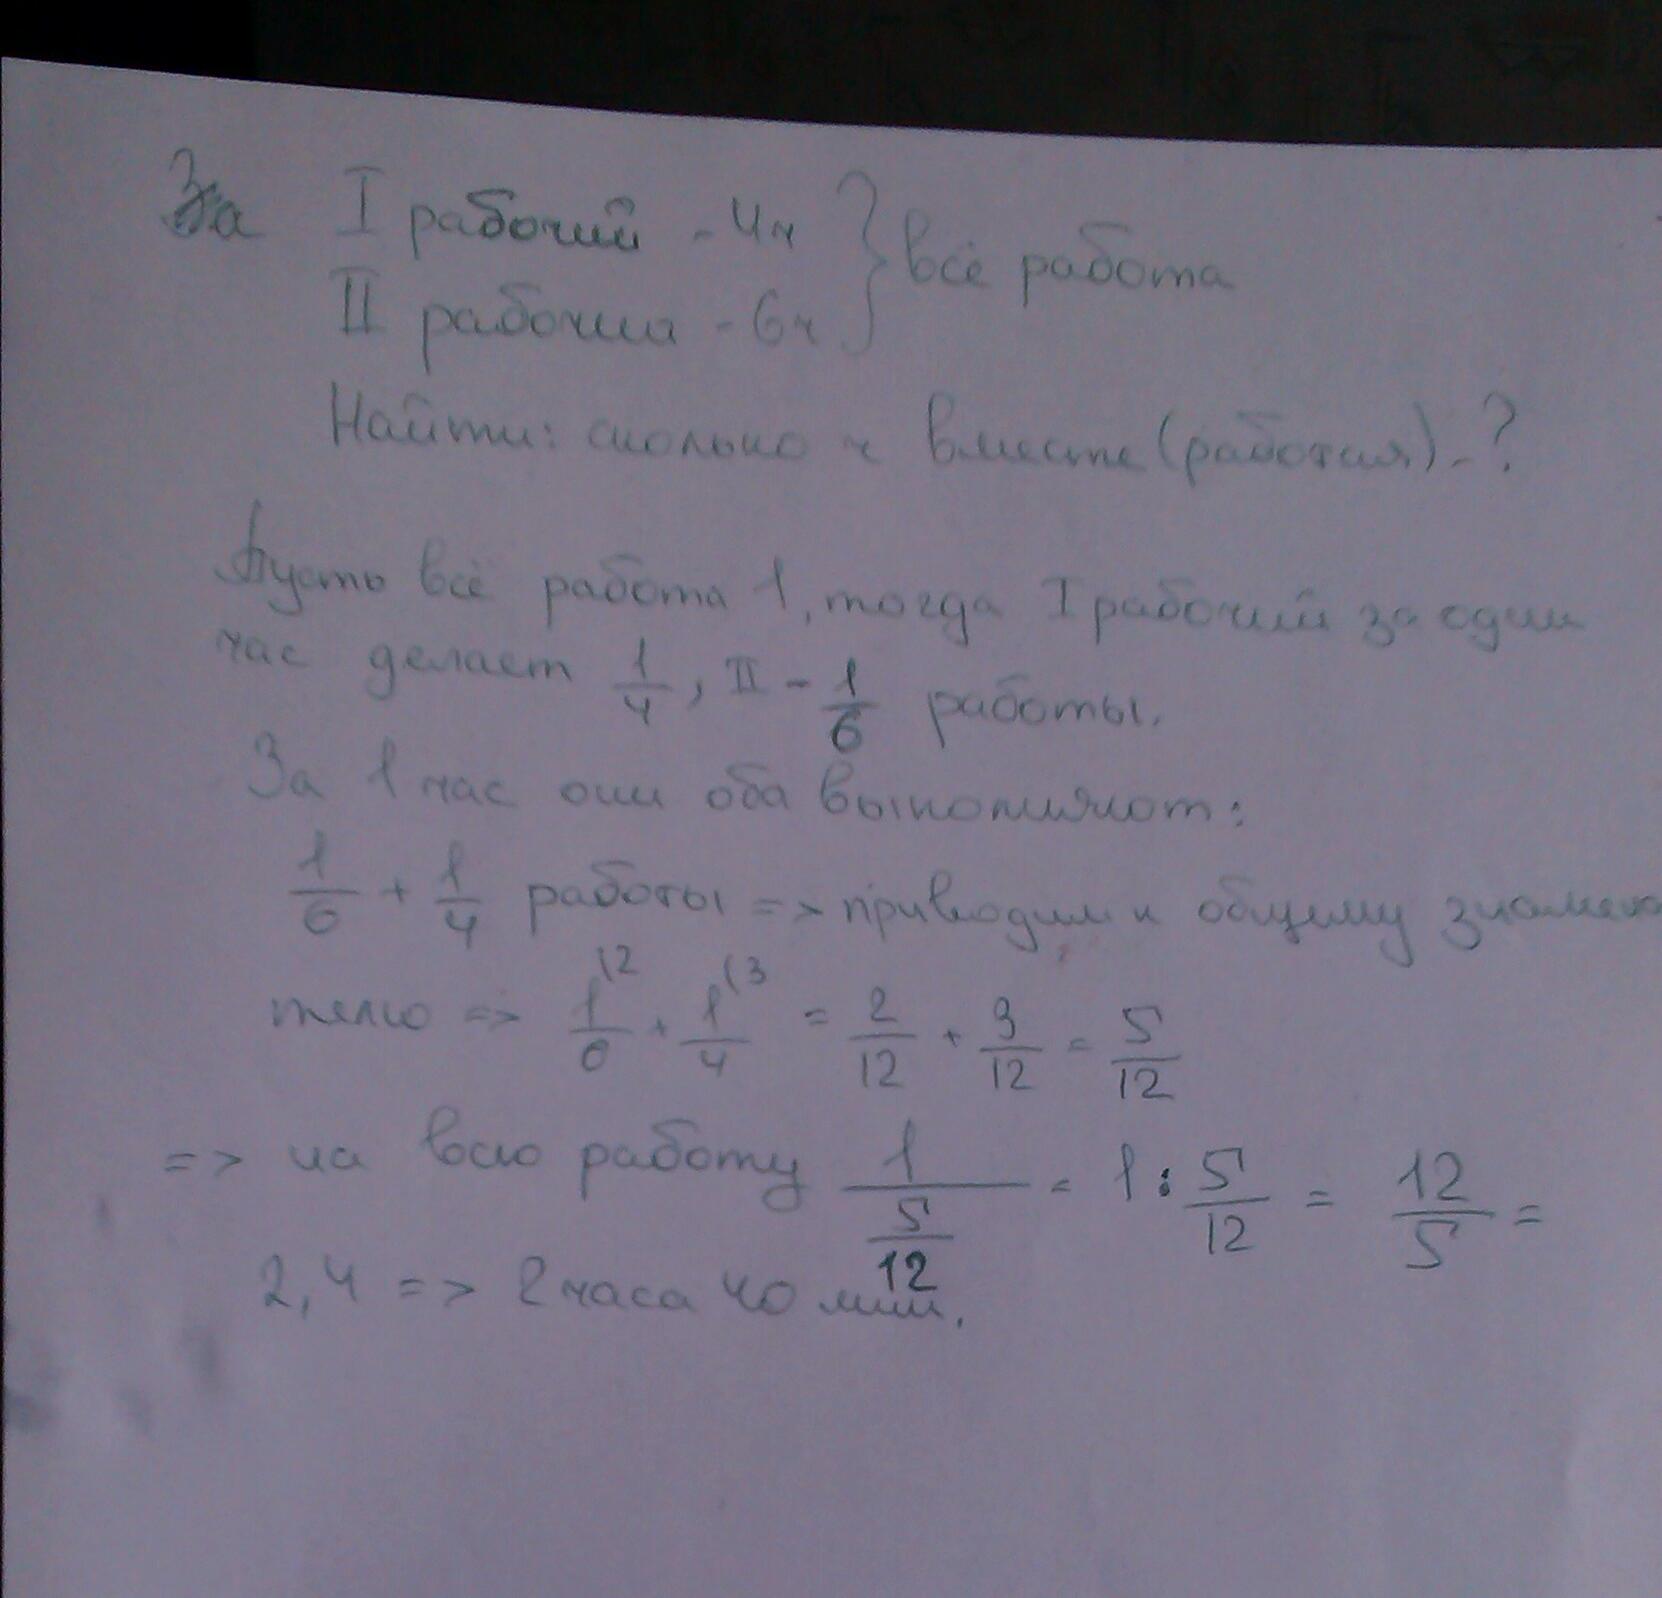 За I рабочий - 4ч } всё работа
II рабочий - 6ч
Найти: сколько ч вместе (работая) - ?
Пусть всё работа 1, тогда I рабочий за один
час делает 1/4, II - 1/6 работы.
За 1 час они оба выполняют:
1/6 + 1/4 работы => приводим к общему знамена
телю => 1/6 (2 + 1/4 (3 = 2/12 + 3/12 = 5/12
=> на всю работу 1/(5/12) = 1 : 5/12 = 12/5 =
2,4 => 2 часа 40 мин.